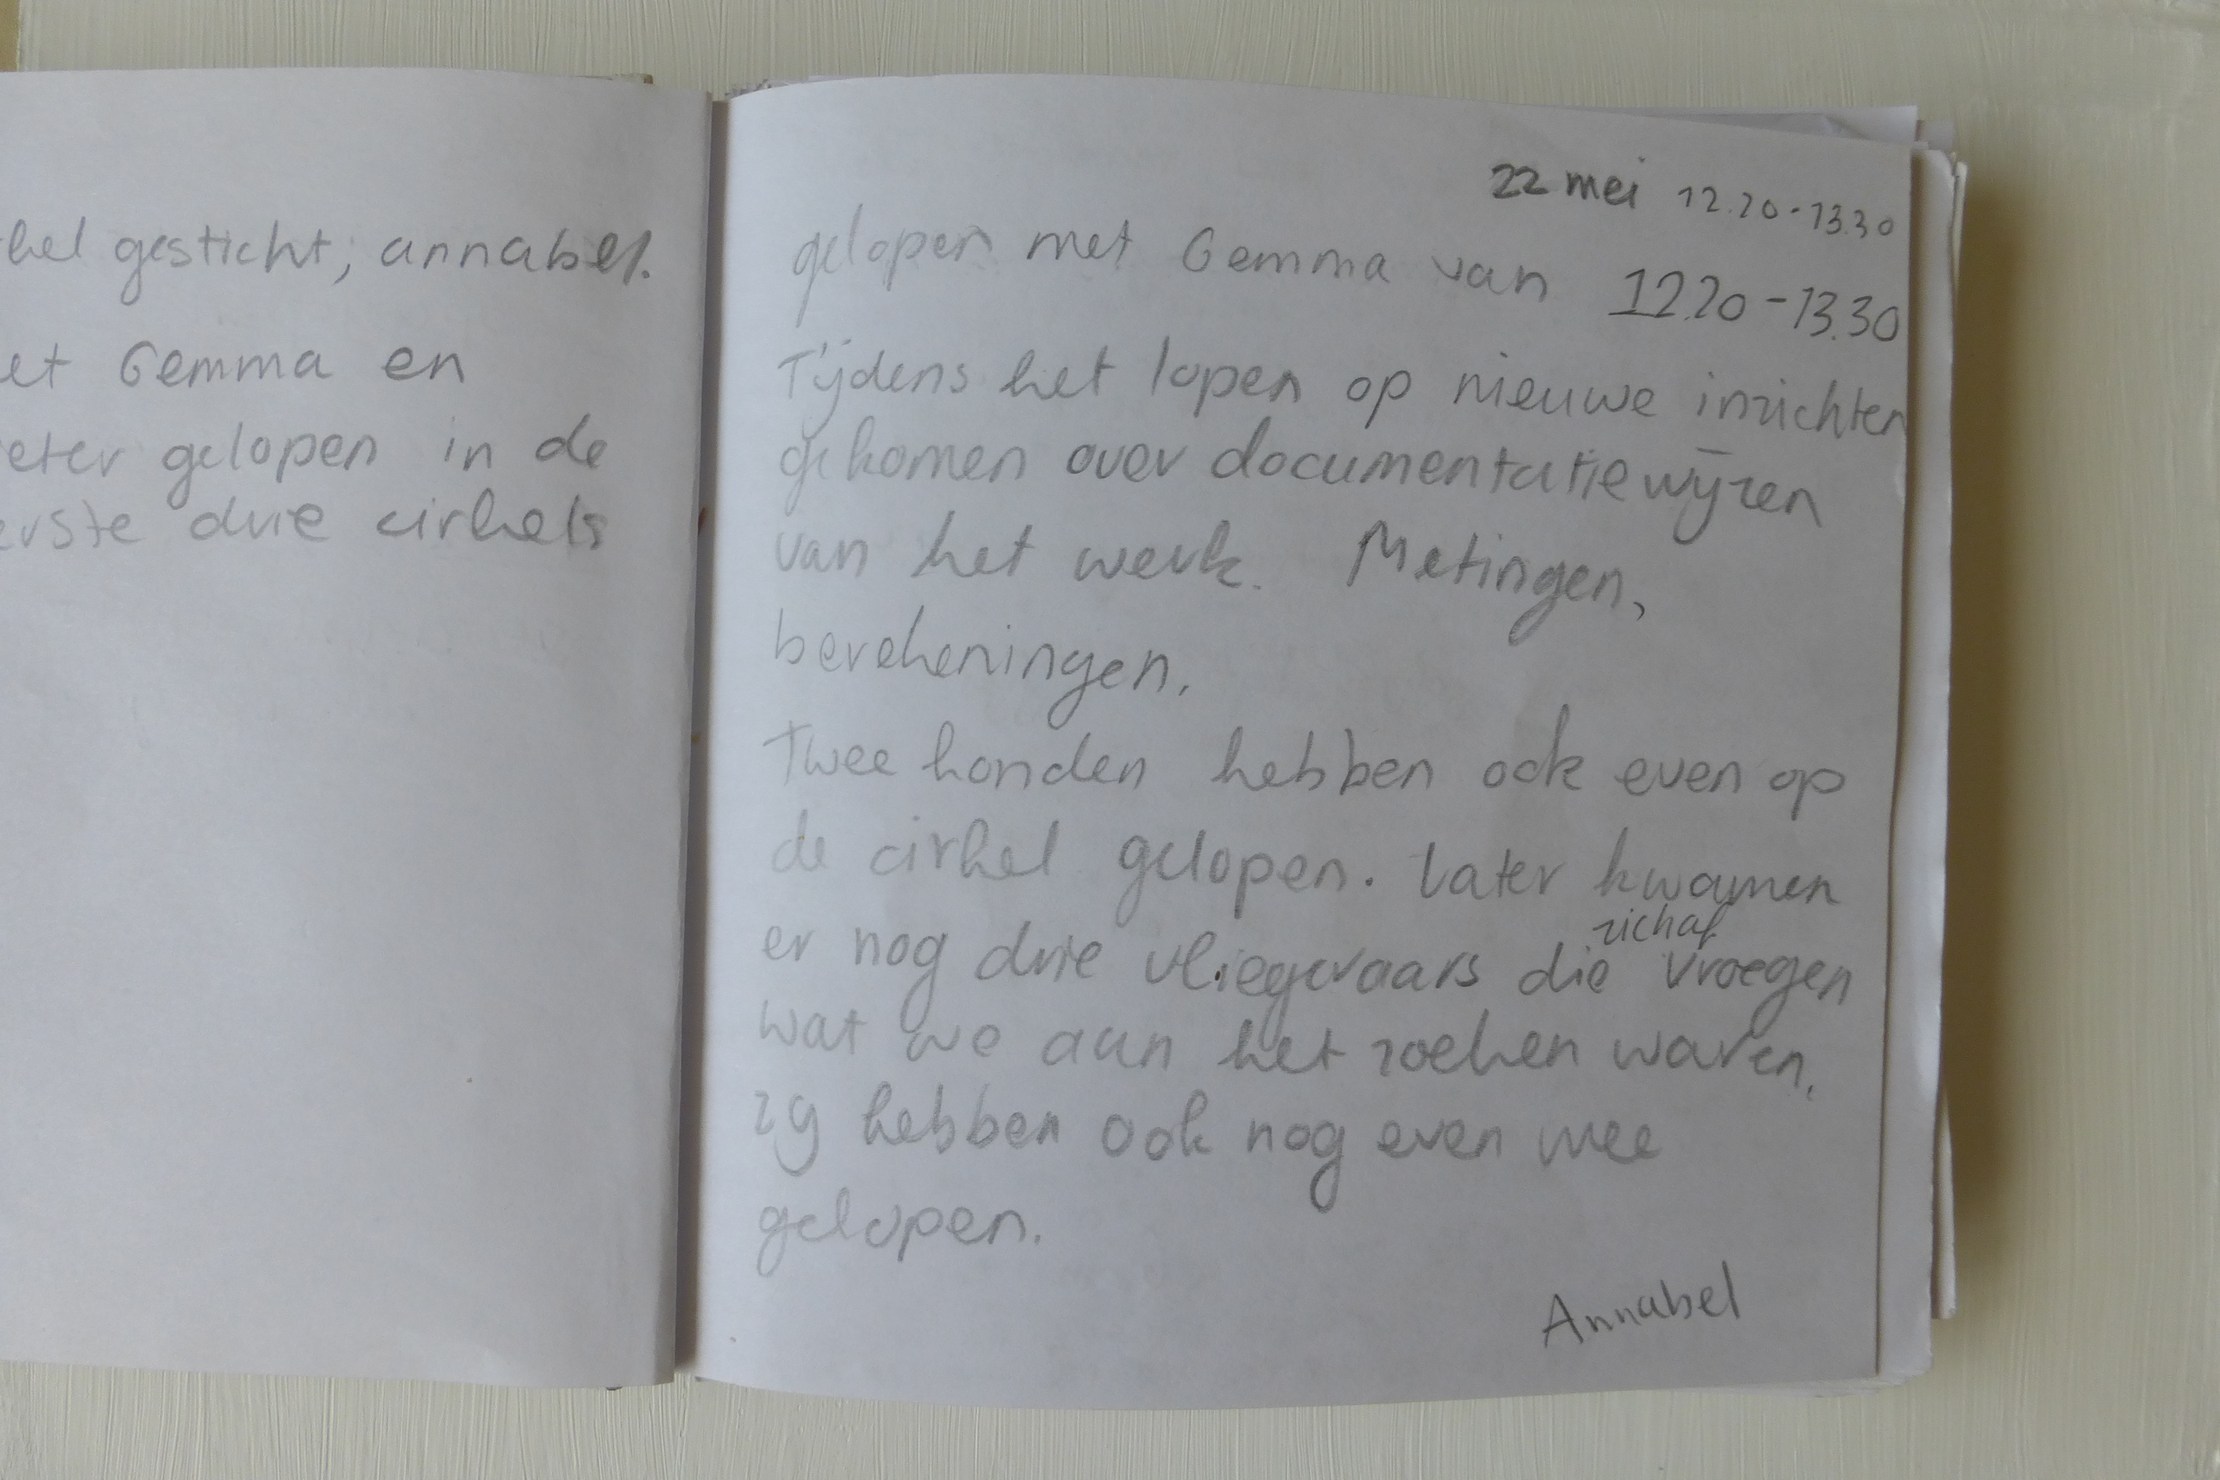 hel gesticht, annabel.
et Gemma en
eter gelopen in de
erste drie cirkels
22 mei 12.20-13.30
gelopen met Gemma van 12.20-13.30
Tijdens het lopen op nieuwe inzichten
gekomen over documentatiewijzen
van het werk. Metingen,
berekeningen.
Twee honden hebben ook even op
de cirkel gelopen. Later kwamen
zichaf
er nog drie vliegeraars die vroegen
wat we aan het zoeken waren.
zij hebben ook nog even mee
gelopen.
Annabel